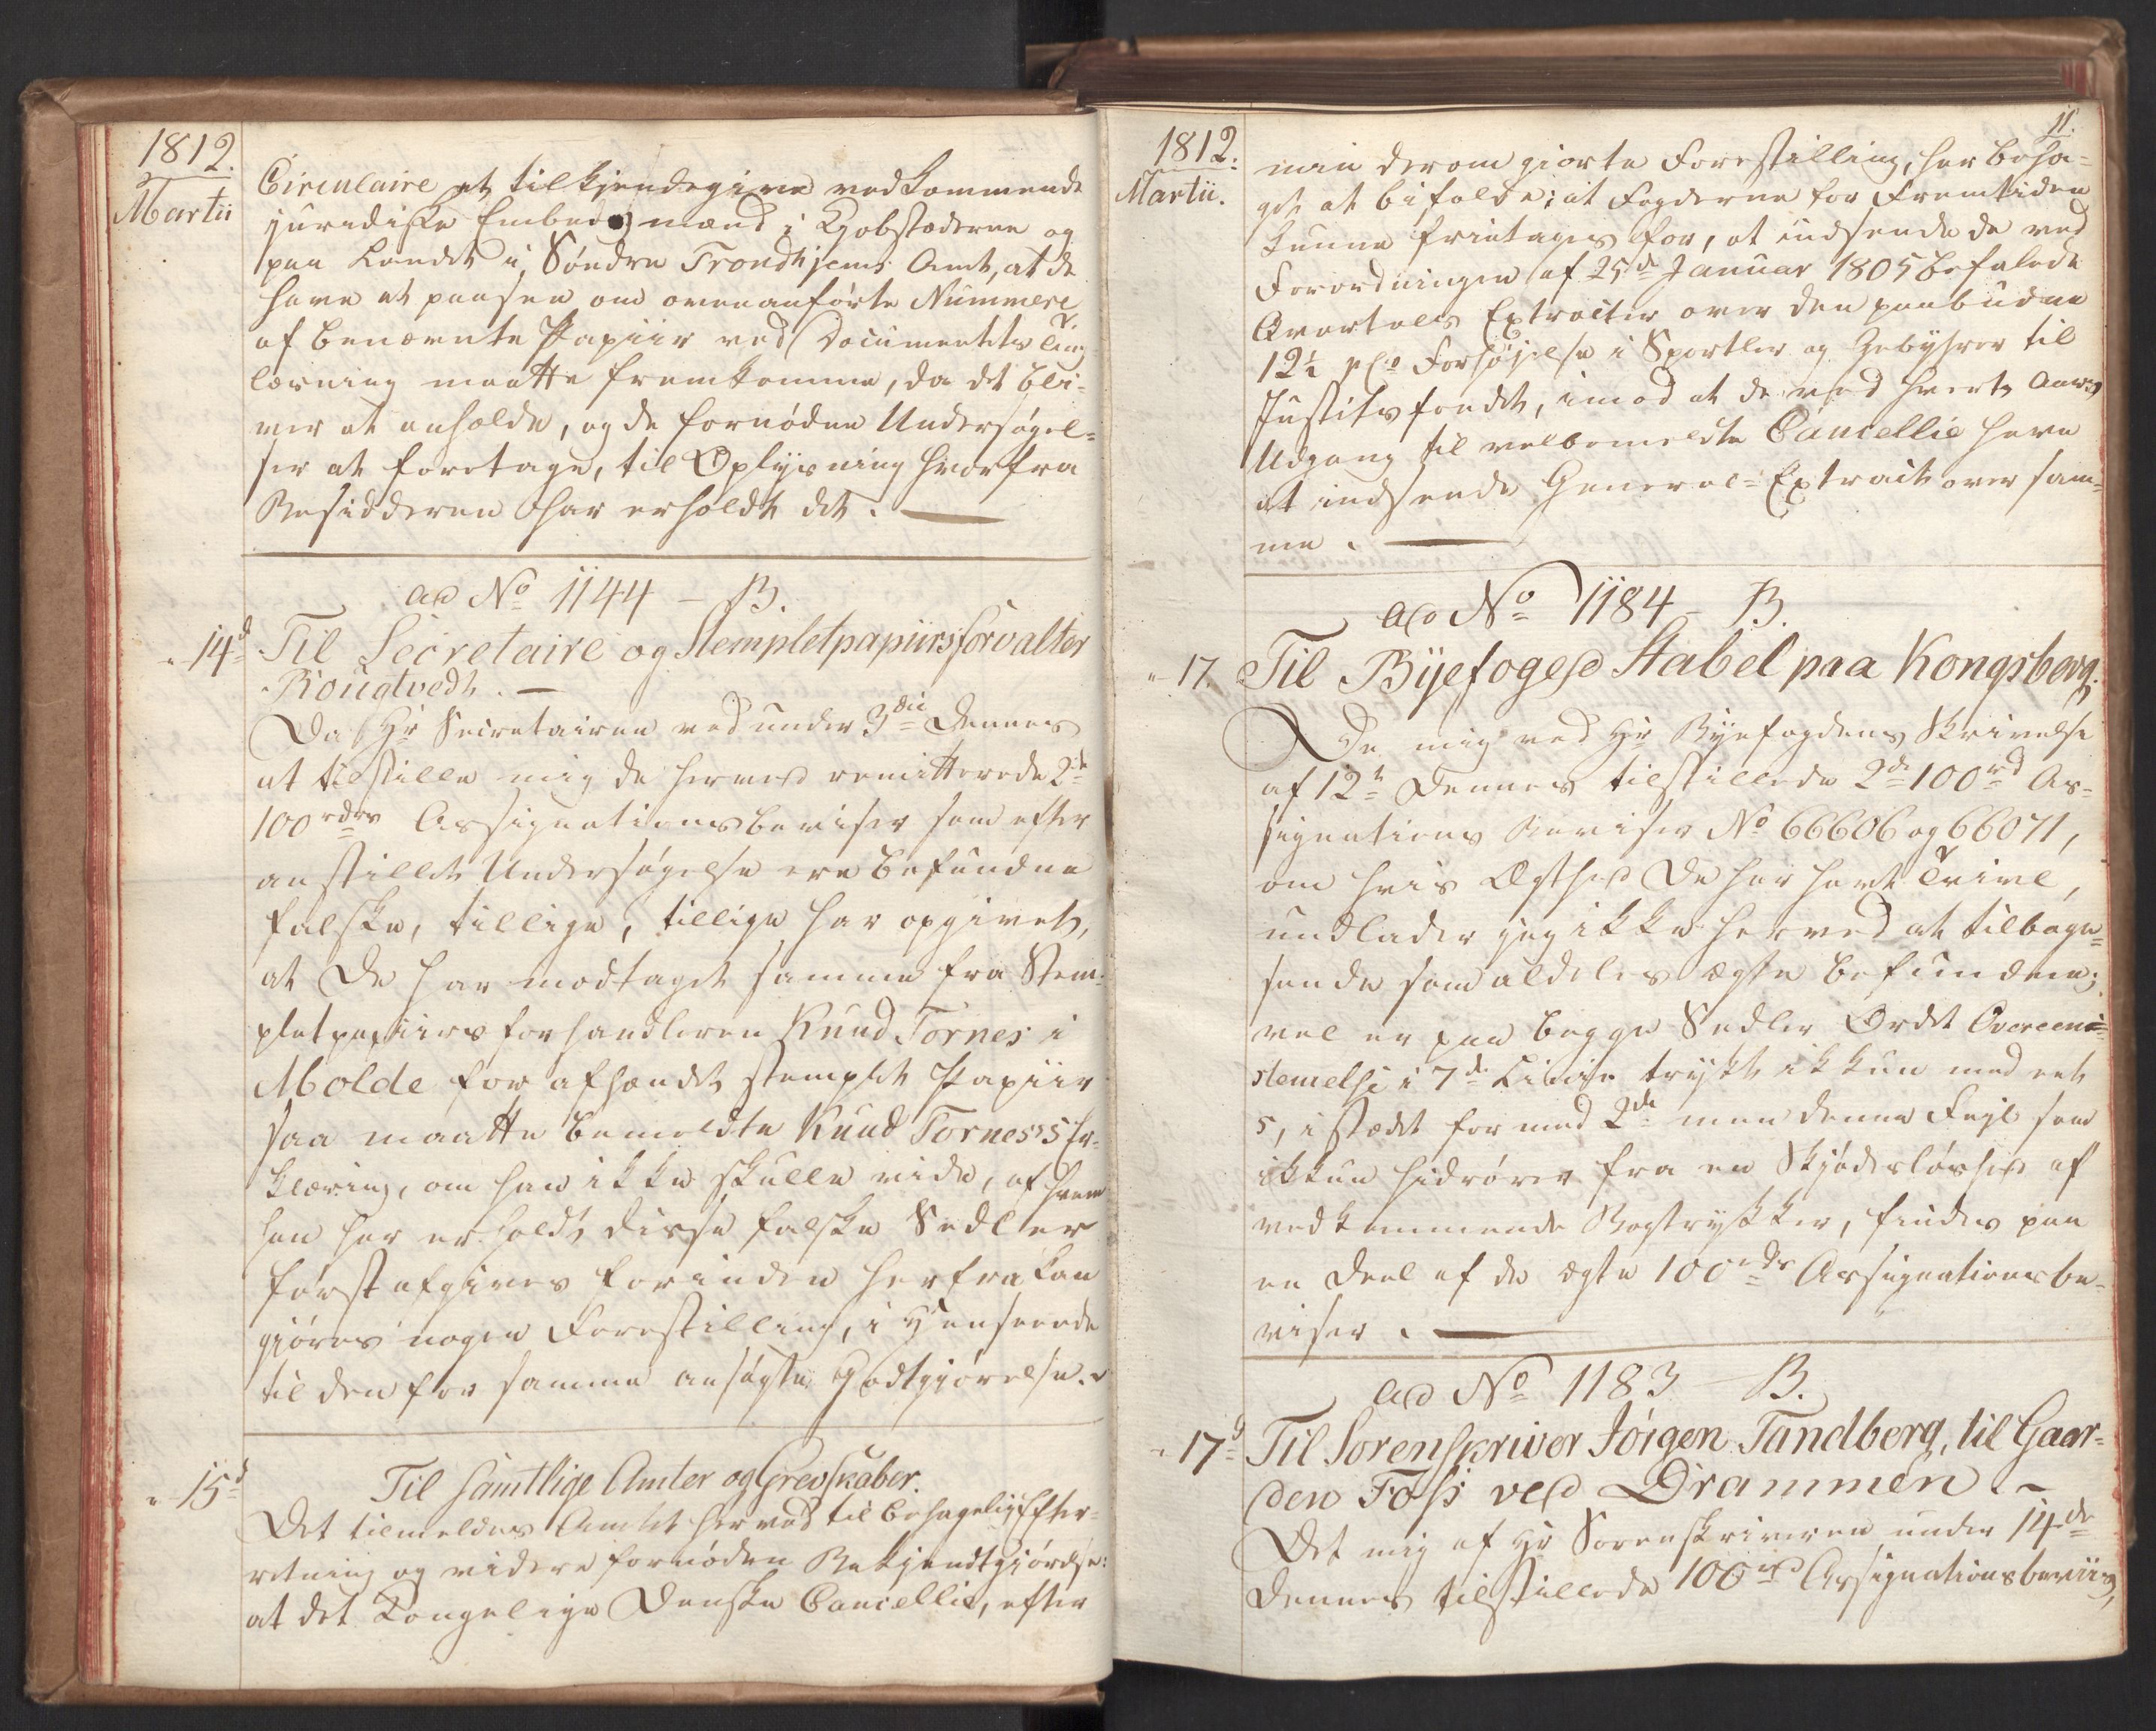 1812.
Martii
Circulaire at tilkjendegive vedkommende
juridiske Embedsmænd i Kjøbstæderne og
paa Landet i Søndre Trondhjems Amt, at de
have at paasee om ovenanførte Nummere
af benævnte Papiir ved Documenters Ting-
læsning maatte fremkomme, da det bli-
ver at anholde, og de fornødne Undersøgel-
ser at foretage, til Oplysning hvorfra
Besidderen har erholdt det. —
ad No 1144 – B.
" 14d
Til Secretaire og Stempletpapiirsforvalter
Rougtvedt. —
Da Hr Secretairen ved under 3die Dennes
at tilstille mig de hermed remitterede 2de
100 rdrs Assignationsbeviser som efter
anstillet Undersøgelse ere befundne
falske, tillige, tillige har opgivet,
at De har modtaget samme fra Stem-
pletpapiirsforhandleren Knud Tornes i
Molde for afhændet stemplet Papiir
saa maatte bemeldte Knud Tornes's Er-
klæring, om han ikke skulle vide, af hvem
han har erholdt disse falske Sedler
først afgives forinden herfra kan
gjøres nogen Forestilling, i Henseende
til den for samme ansøgte Godtgjørelse. –
" 15d
Til samtlige Amter og Grevskaber.
Det tilmeldes Amtet herved til behagelig Efter-
retning og videre fornøden Bekjendtgjørelse:
at det Kongelige Danske Cancellie, efter
11.
1812.
Martii.
min derom giorte Forestilling, har beha-
get at bifalde; at Fogderne for Fremtiden
kunne fritages for, at indsende de ved
Forordningen af 25de Januar 1805 befalede
Qvartals Extracter over den paabudne
12½ pCo Forhøjelse i Sportler og Gebyhrer til
Justitsfondet, imod at de ved hvert Aars
Udgang til velbemeldte Cancellie have
at indsende General-Extract over sam-
me. —
ad No 1184 – B.
" 17.
Til Byefoged Stabel paa Kongsberg.
De mig ved Hr Byefogdens Skrivelse
af 12te Dennes tilstillede 2de 100 rd As-
signations Beviser No 66606 og 66071,
om hvis Ægthed De har havt Tvivl,
undlader jeg ikke herved at tilbage-
sende som aldeles ægte befundne;
vel er paa begge Sedler Ordet Overeens-
stemelse i 7de Linie trykt ikkun med eet
s, istædet for med 2de men denne Fejl som
ikkun hidrører fra en Skjødesløshed af
vedkommende Bogtrykker, findes paa
en Deel af de ægte 100 rdrs Assignationsbe-
viser. —
ad No 1183 – B.
" 17d
Til Sorenskriver Jørgen Tandberg, til Gaar-
den Foss ved Drammen. –
Det mig af Hr Sorenskriveren under 14de
Dennes tilstillede 100 rd Assignationsbeviis,